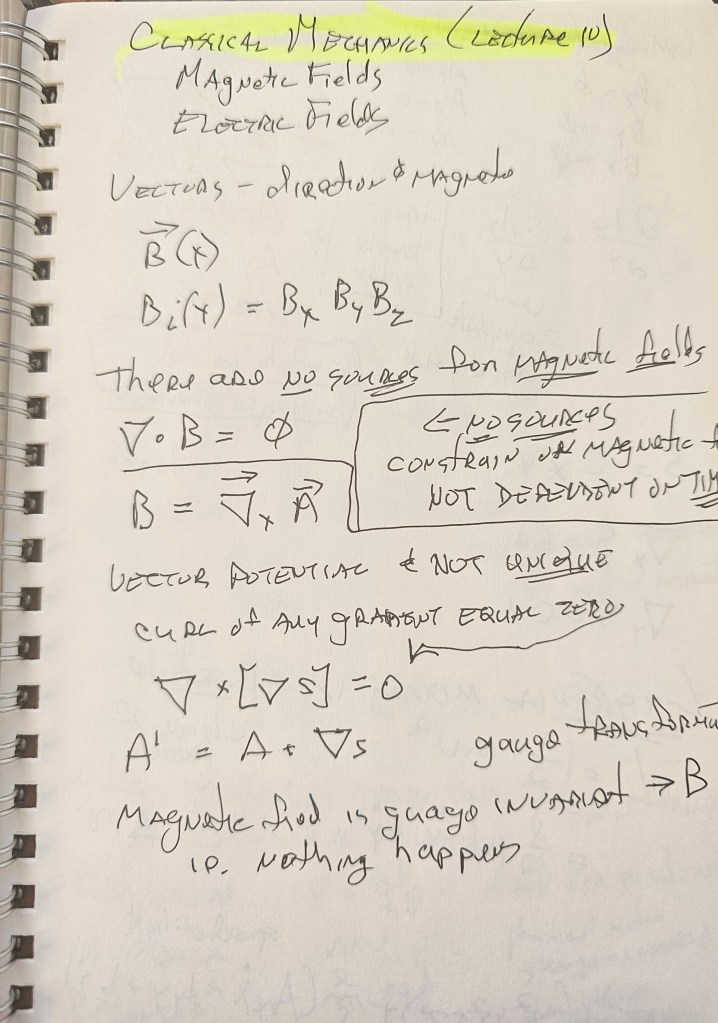 CLASSICAL MECHANICS (Lecture 10)
MAgnetic Fields
ELECTRIC Fields
VECTORS - diRection & MAgneto
B⃗(x)
Bi(x) = Bx By Bz
There are NO SOURCES for MAgnetic fields
∇ · B = ϕ
← NO SOURCES
CONSTRAIN ON MAgnetic f
NOT DEPENDENT ON TIM
B = ∇⃗ x A⃗
VECTOR POTENTIAL & NOT UNIQUE
CURL of ANY gRADIENT EQUAL ZERO
∇ × [∇ s] = 0
A' = A + ∇s
gauge TRANSforma
MAgnetic fied is guage INVARIANT → B
ie. Nothing happens